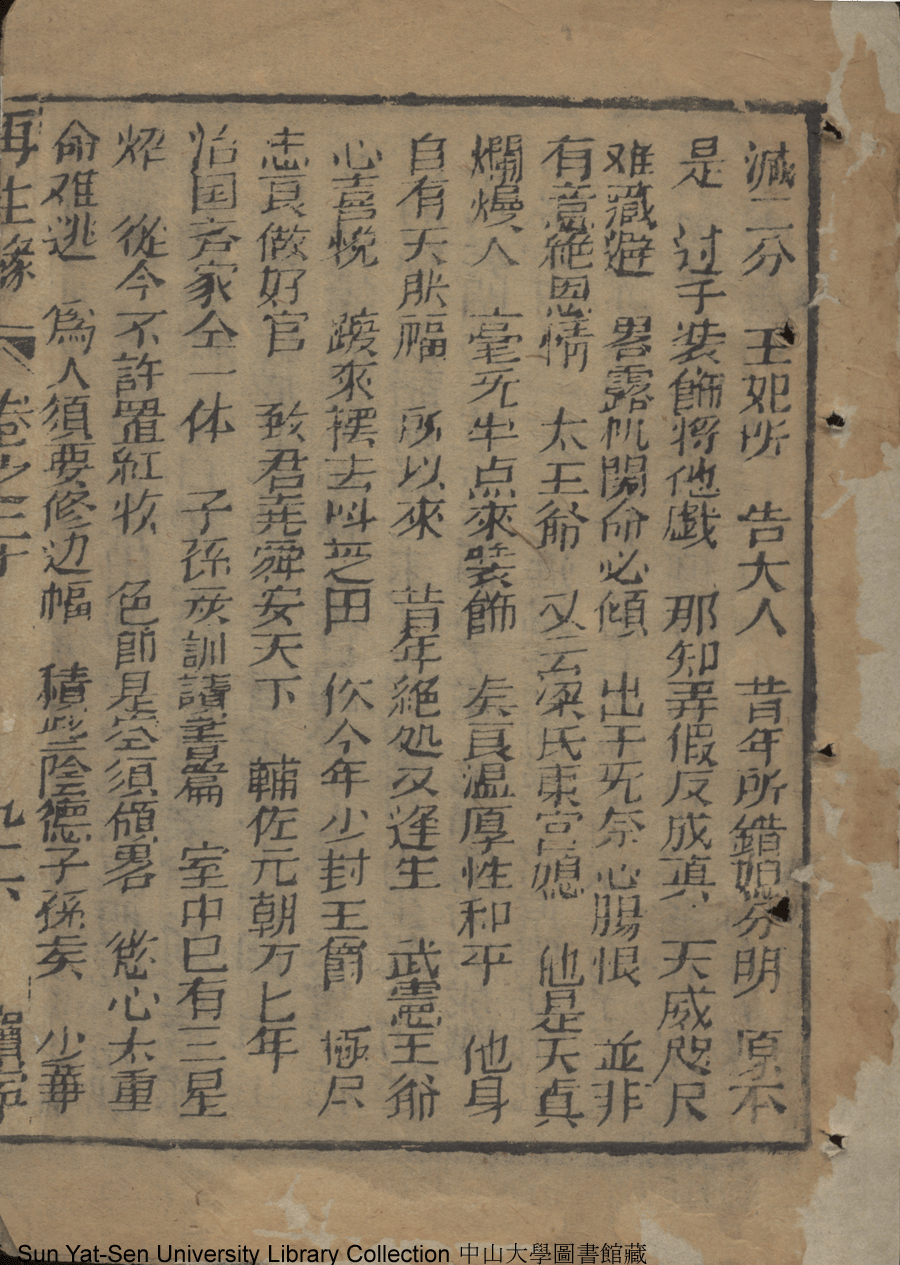 滅二分　王妃所　告大人　昔年所錯媳分明　原本
是　过于装飾将他戱　那知弄假反成真　天威咫尺
难藏避　畧露机関命必傾　出于旡奈心腸恨　並非
有意絶恩情　太王爺　又云梁氏東宮媳　他是天真
爛熳人　毫旡半点來装飾　矣良温厚性和平　他身
自有天然福　所以來　昔年絶処又逢生　武憲王爺
心喜悅　踱來擺去呌芝田　伱今年少封王爵　極尽
忠良做好官　致君堯舜安天下　輔佐元朝万七年
治国斉家仝一体　子孫灰訓讀書篇　室中已有三星
炤　從今不許置紅妆　色即是空須領畧　慾心太重
命难逃　爲人須要修边幅　積些陰德子孫矣　少華
再生緣　卷之二十　九一六
Sun Yat-Sen University Library Collection 中山大學圖書館藏